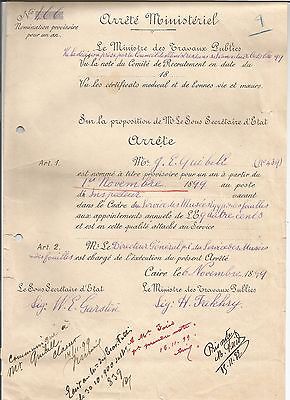 No 166
Nomination provisoire
pour un an.
Arrêté Ministériel
Le Ministre des Travaux Publics
Vu la note du Comité de Recrutement en date du
18
Vu les certificats medical et de bonnes vie et mœurs.
Sur la proposition de Mr Le Sous Secrétaire d'Etat
Arrête
Art. 1. Mr J. E. Quibell (No 439)
est nommé à titre provisoire pour un an à partir du
1er Novembre 1899 au poste
de Inspecteur vacant
dans le Cadre du Service des Musées Egypt. & des fouilles
aux appointements annuels de L Eg quatre cents
et est en cette qualité attaché au Service
Art. 2. Mr Le Directeur Général p.i. du Service des Musées
& des fouilles est chargé de l'exécution du présent Arrêté
Caire 6 Novembre 1899
Le Sous Secrétaire d'Etat
Le Ministre des Travaux Publics
Sig: W. E. Garstin
Sig: H. Fakhry
Communiqué à
Mr Quibell
839